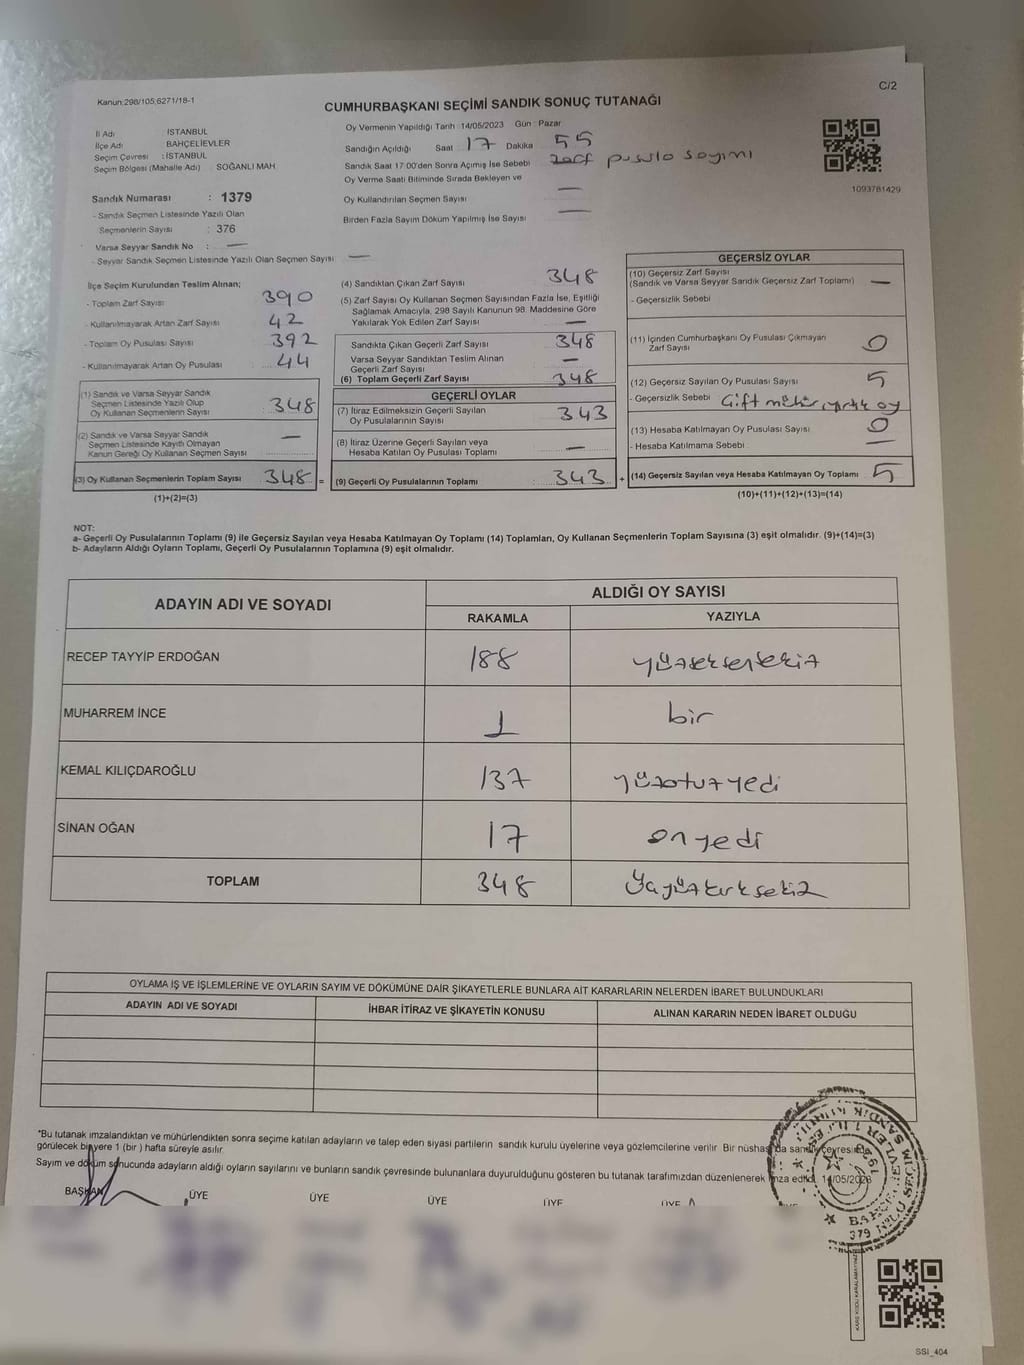 Kanun:298/105,6271/18-1
C/2
CUMHURBAŞKANI SEÇİMİ SANDIK SONUÇ TUTANAĞI
İl Adı : İSTANBUL
İlçe Adı : BAHÇELİEVLER
Seçim Çevresi : İSTANBUL
Seçim Bölgesi (Mahalle Adı) : SOĞANLI MAH.
Oy Vermenin Yapıldığı Tarih :14/05/2023 Gün : Pazar
Sandığın Açıldığı Saat 17 Dakika 55
Sandık Saat 17:00'den Sonra Açımış İse Sebebi zarf pusula sayımı
Oy Verme Saati Bitiminde Sırada Bekleyen ve
Oy Kullandırılan Seçmen Sayısı —
Birden Fazla Sayım Döküm Yapılmış İse Sayısı —
1093781429
Sandık Numarası : 1379
- Sandık Seçmen Listesinde Yazılı Olan
Seçmenlerin Sayısı : 376
Varsa Seyyar Sandık No : —
- Seyyar Sandık Seçmen Listesinde Yazılı Olan Seçmen Sayısı —
İlçe Seçim Kurulundan Teslim Alınan;
- Toplam Zarf Sayısı 390
- Kullanılmayarak Artan Zarf Sayısı 42
- Toplam Oy Pusulası Sayısı 392
- Kullanılmayarak Artan Oy Pusulası 44
(1) Sandık ve Varsa Seyyar Sandık
Seçmen Listesinde Yazılı Olup
Oy Kullanan Seçmenlerin Sayısı 348
(2) Sandık ve Varsa Seyyar Sandık
Seçmen Listesinde Kayıtlı Olmayan
Kanun Gereği Oy Kullanan Seçmen Sayısı —
(3) Oy Kullanan Seçmenlerin Toplam Sayısı 348 =
(1)+(2)=(3)
(4) Sandıktan Çıkan Zarf Sayısı 348
(5) Zarf Sayısı Oy Kullanan Seçmen Sayısından Fazla İse, Eşitliği
Sağlamak Amacıyla, 298 Sayılı Kanunun 98. Maddesine Göre
Yakılarak Yok Edilen Zarf Sayısı —
Sandıkta Çıkan Geçerli Zarf Sayısı 348
Varsa Seyyar Sandıktan Teslim Alınan
Geçerli Zarf Sayısı —
(6) Toplam Geçerli Zarf Sayısı 348
GEÇERLİ OYLAR
(7) İtiraz Edilmeksizin Geçerli Sayılan
Oy Pusulalarının Sayısı 343
(8) İtiraz Üzerine Geçerli Sayılan veya
Hesaba Katılan Oy Pusulası Toplamı —
(9) Geçerli Oy Pusulalarının Toplamı 343 +
GEÇERSİZ OYLAR
(10) Geçersiz Zarf Sayısı
(Sandık ve Varsa Seyyar Sandık Geçersiz Zarf Toplamı) —
- Geçersizlik Sebebi
(11) İçinden Cumhurbaşkanı Oy Pusulası Çıkmayan
Zarf Sayısı 0
(12) Geçersiz Sayılan Oy Pusulası Sayısı 5
- Geçersizlik Sebebi Çift mühür, yırtık oy
(13) Hesaba Katılmayan Oy Pusulası Sayısı 0
- Hesaba Katılmama Sebebi —
(14) Geçersiz Sayılan veya Hesaba Katılmayan Oy Toplamı 5
(10)+(11)+(12)+(13)=(14)
NOT:
a- Geçerli Oy Pusulalarının Toplamı (9) ile Geçersiz Sayılan veya Hesaba Katılmayan Oy Toplamı (14) Toplamları, Oy Kullanan Seçmenlerin Toplam Sayısına (3) eşit olmalıdır. (9)+(14)=(3)
b- Adayların Aldığı Oyların Toplamı, Geçerli Oy Pusulalarının Toplamına (9) eşit olmalıdır.
ADAYIN ADI VE SOYADI
ALDIĞI OY SAYISI
RAKAMLA YAZIYLA
RECEP TAYYİP ERDOĞAN 188 yüzseksensekiz
MUHARREM İNCE 1 bir
KEMAL KILIÇDAROĞLU 137 yüzotuzyedi
SİNAN OĞAN 17 onyedi
TOPLAM 348
OYLAMA İŞ VE İŞLEMLERİNE VE OYLARIN SAYIM VE DÖKÜMÜNE DAİR ŞİKAYETLERLE BUNLARA AİT KARARLARIN NELERDEN İBARET BULUNDUKLARI
ADAYIN ADI VE SOYADI İHBAR İTİRAZ VE ŞİKAYETİN KONUSU ALINAN KARARIN NEDEN İBARET OLDUĞU
"Bu tutanak imzalandıktan ve mühürlendikten sonra seçime katılan adayların ve talep eden siyasi partilerin sandık kurulu üyelerine veya gözlemcilerine verilir. Bir nüshası da sandık çevresinde
görülecek bir yere 1 (bir) hafta süreyle asılır.
Sayım ve döküm sonucunda adayların aldığı oyların sayılarını ve bunların sandık çevresinde bulunanlara duyurulduğunu gösteren bu tutanak tarafımızdan düzenlenerek imza edildi. 14/05/2023
BAŞKAN ÜYE ÜYE ÜYE ÜYE ÜYE
SSİ_404